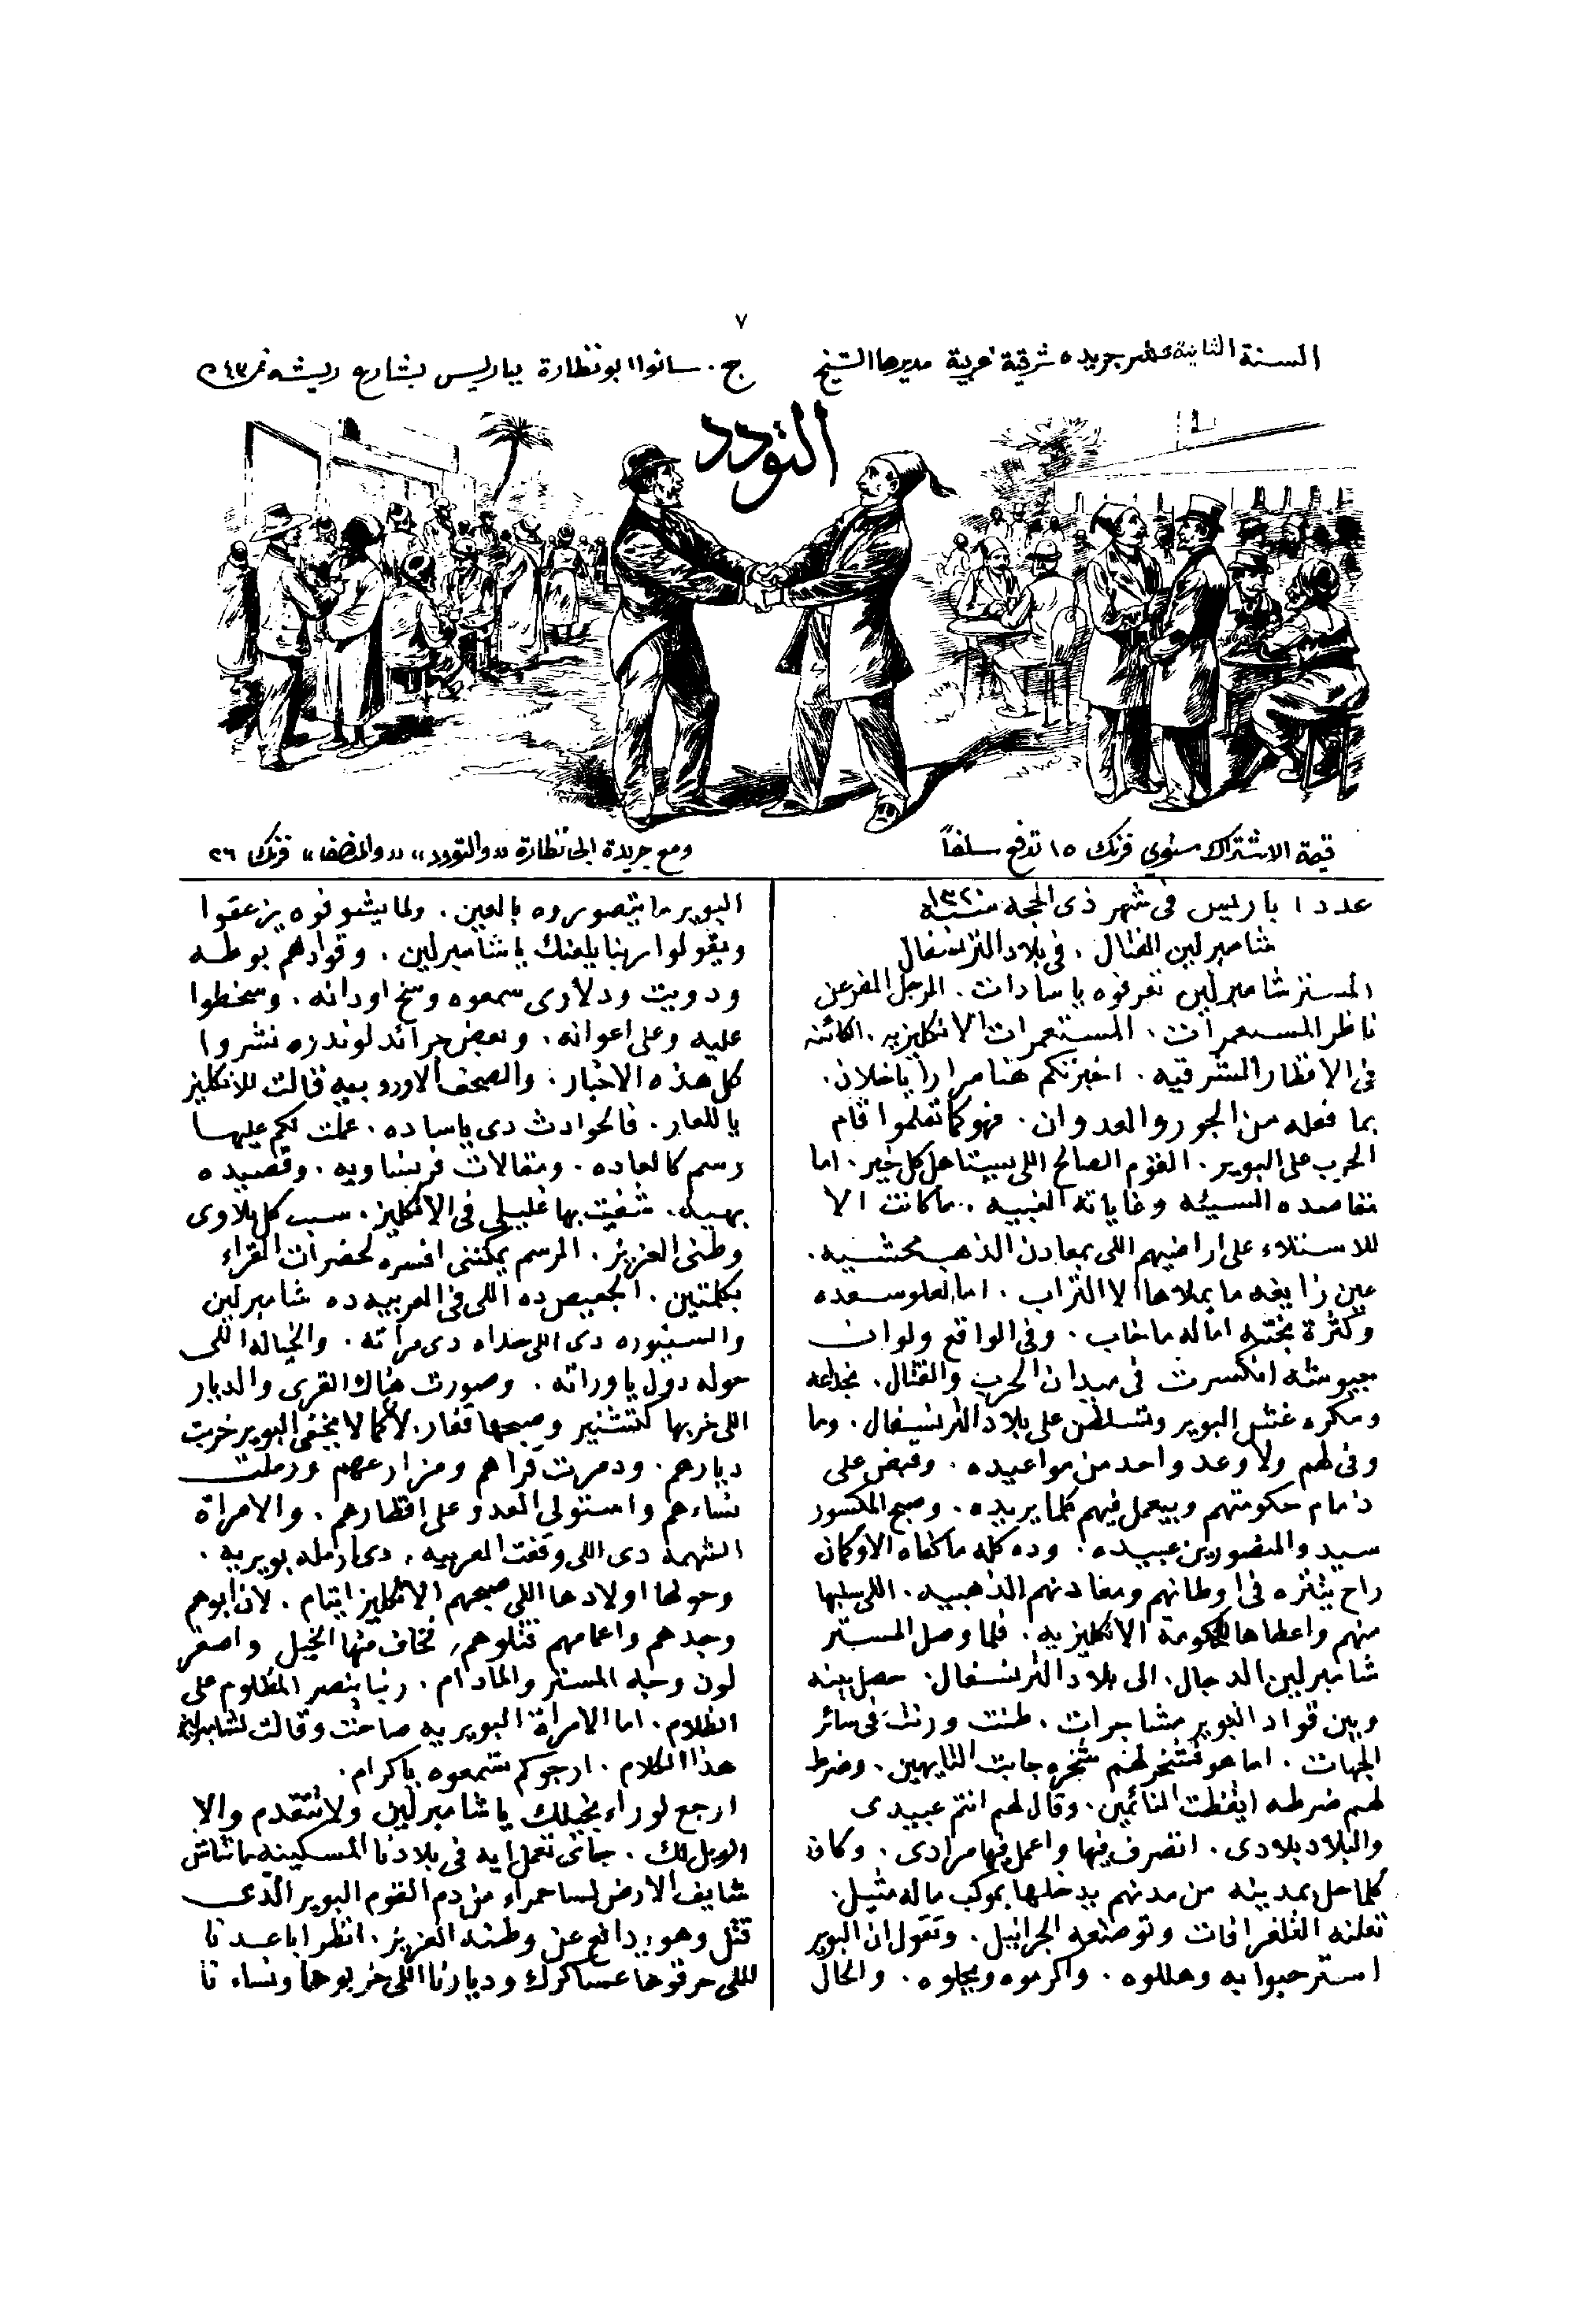 ٧
السنة الثانية عشر جريدة شرقية عربية مديرها الشيخ ج. سانوا ابو نظارة بباريس بشارع ريشه نمر ٤٣
التودد
قيمة الاشتراك سنوي فرنك ١٥ تدفع سلفاً
ومع جريدة ابى نظارة «والتودد» «والمنصف» فرنك ٢٦
عدد ١ باريس فى شهر ذى الحجة سنة ١٣٢٠
شامبرلين القتال. فى بلاد الترنسفال
المستر شامبرلين تعرفوه يا سادات. الرجل المفرعن
ناظر المستعمرات. المستعمرات الانكليزيه. الكائنه
فى الاقطار الشرقيه. اخبرتكم هنا مراراً يا خلان.
بما فعله من الجور والعدوان. فهو كما تعلموا قام
الحرب على البوير. القوم الصالح اللى يستاهل كل خير. اما
مقاصده السيئه وغاياته الغبيه. ما كانت الا
للاستلاء على اراضيهم اللى بمعادن الذهب محشيه.
عين زايغه ما يملاها الا التراب. اما لعلو سعده
وكثرة بخته اماله ما خاب. وفى الواقع ولو ان
جيوشه انكسرت فى ميدان الحرب والقتال. بخداعه
ومكره غش البوير وتسلطن على بلاد الترنسفال. وما
وفى لهم ولا وعد واحد من مواعيده. وقبض على
زمام حكومتهم وبيعمل فيهم كلما يريده. وصبح المكسور
سيد والمنصورين عبيده. وده كله ما كفاه الا وكان
راح يتنزه فى اوطانهم ومعادنهم الذهبيه. اللى سلبها
منهم واعطاها للحكومة الانكليزيه. فلما وصل المستر
شامبرلين الدجال. الى بلاد الترنسفال. حصل بينه
وبين قواد البوير مشاجرات. طنت ورنت فى سائر
الجهات. اما هو فشخر لهم شخره جابت التايهين. وضرط
لهم ضرطه ايقظت النائمين. وقال لهم انتم عبيدى
والبلاد بلادى. اتصرف فيها واعمل فيها مرادى. وكان
كلما حل بمدينه من مدنهم يدخلها بموكب ماله مثيل.
تعلنه التلغرافات وتوصفه الجرانيل. وتقول ان البوير
استرحبوا به وهللوه. واكرموه وبجلوه. والحال
البوير ما يتصوروه بالعين. ولما يشوفوه يزعقوا
ويقولوا ربنا يلعنك يا شامبرلين. وقوادهم بوطه
ودويت ودلارى سمعوه وسخ اودانه. وسخطوا
عليه وعلى اعوانه. وبعض جرائد لوندره نشروا
كل هذه الاخبار. والصحف الاوروبيه قالت للانكليز
يا للعار. فالحوادث دى يا ساده. عملت لكم عليها
رسم كالعاده. ومقالات فرنساويه. وقصيده
بهيه. شفيت بها غليلى فى الانكليز. سبب كل بلاوى
وطنى العزيز. الرسم يمكننى افسره لحضرات القراء
بكلمتين. الجعيص ده اللى فى العربيه ده شامبرلين
والسنيوره دى اللى حداه دى مرأته. والخياله اللى
حوله دول ياوراته. وصورت هناك القرى والديار
اللى خربها كتشنير وصبحها قفار. لا كما لا يخفى البوير خربت
ديارهم. ودمرت قراهم ومزارعهم ورملت
نساءهم واستولى العدو على اقطارهم. والامراة
الشهمة دى اللى وقفت العربيه. دى ارمله بويريه.
وحولها اولادها اللى صبحهم الانكليز ايتام. لان ابوهم
وجدهم واعمامهم قتلوهم. فخاف منها الخيل واصفر
لون وجه المستر والمادام. ربنا ينصر المظلوم على
الظلام. اما الامرأة البويريه صاحت وقالت لشامبرلين
هذا الكلام. ارجوكم تسمعوه يا كرام.
ارجع لوراء بخيلك يا شامبرلين ولا تتقدم والا
الويل لك. جاى تعمل ايه فى بلادنا المسكينه مانتاش
شايف الارض لسا حمراء من دم القوم البوير الذى
قتل وهو يدافع عن وطنه العزيز. انظر اباعدنا
اللى حرقوها عساكرك وديارنا اللى خربوها ونساءنا